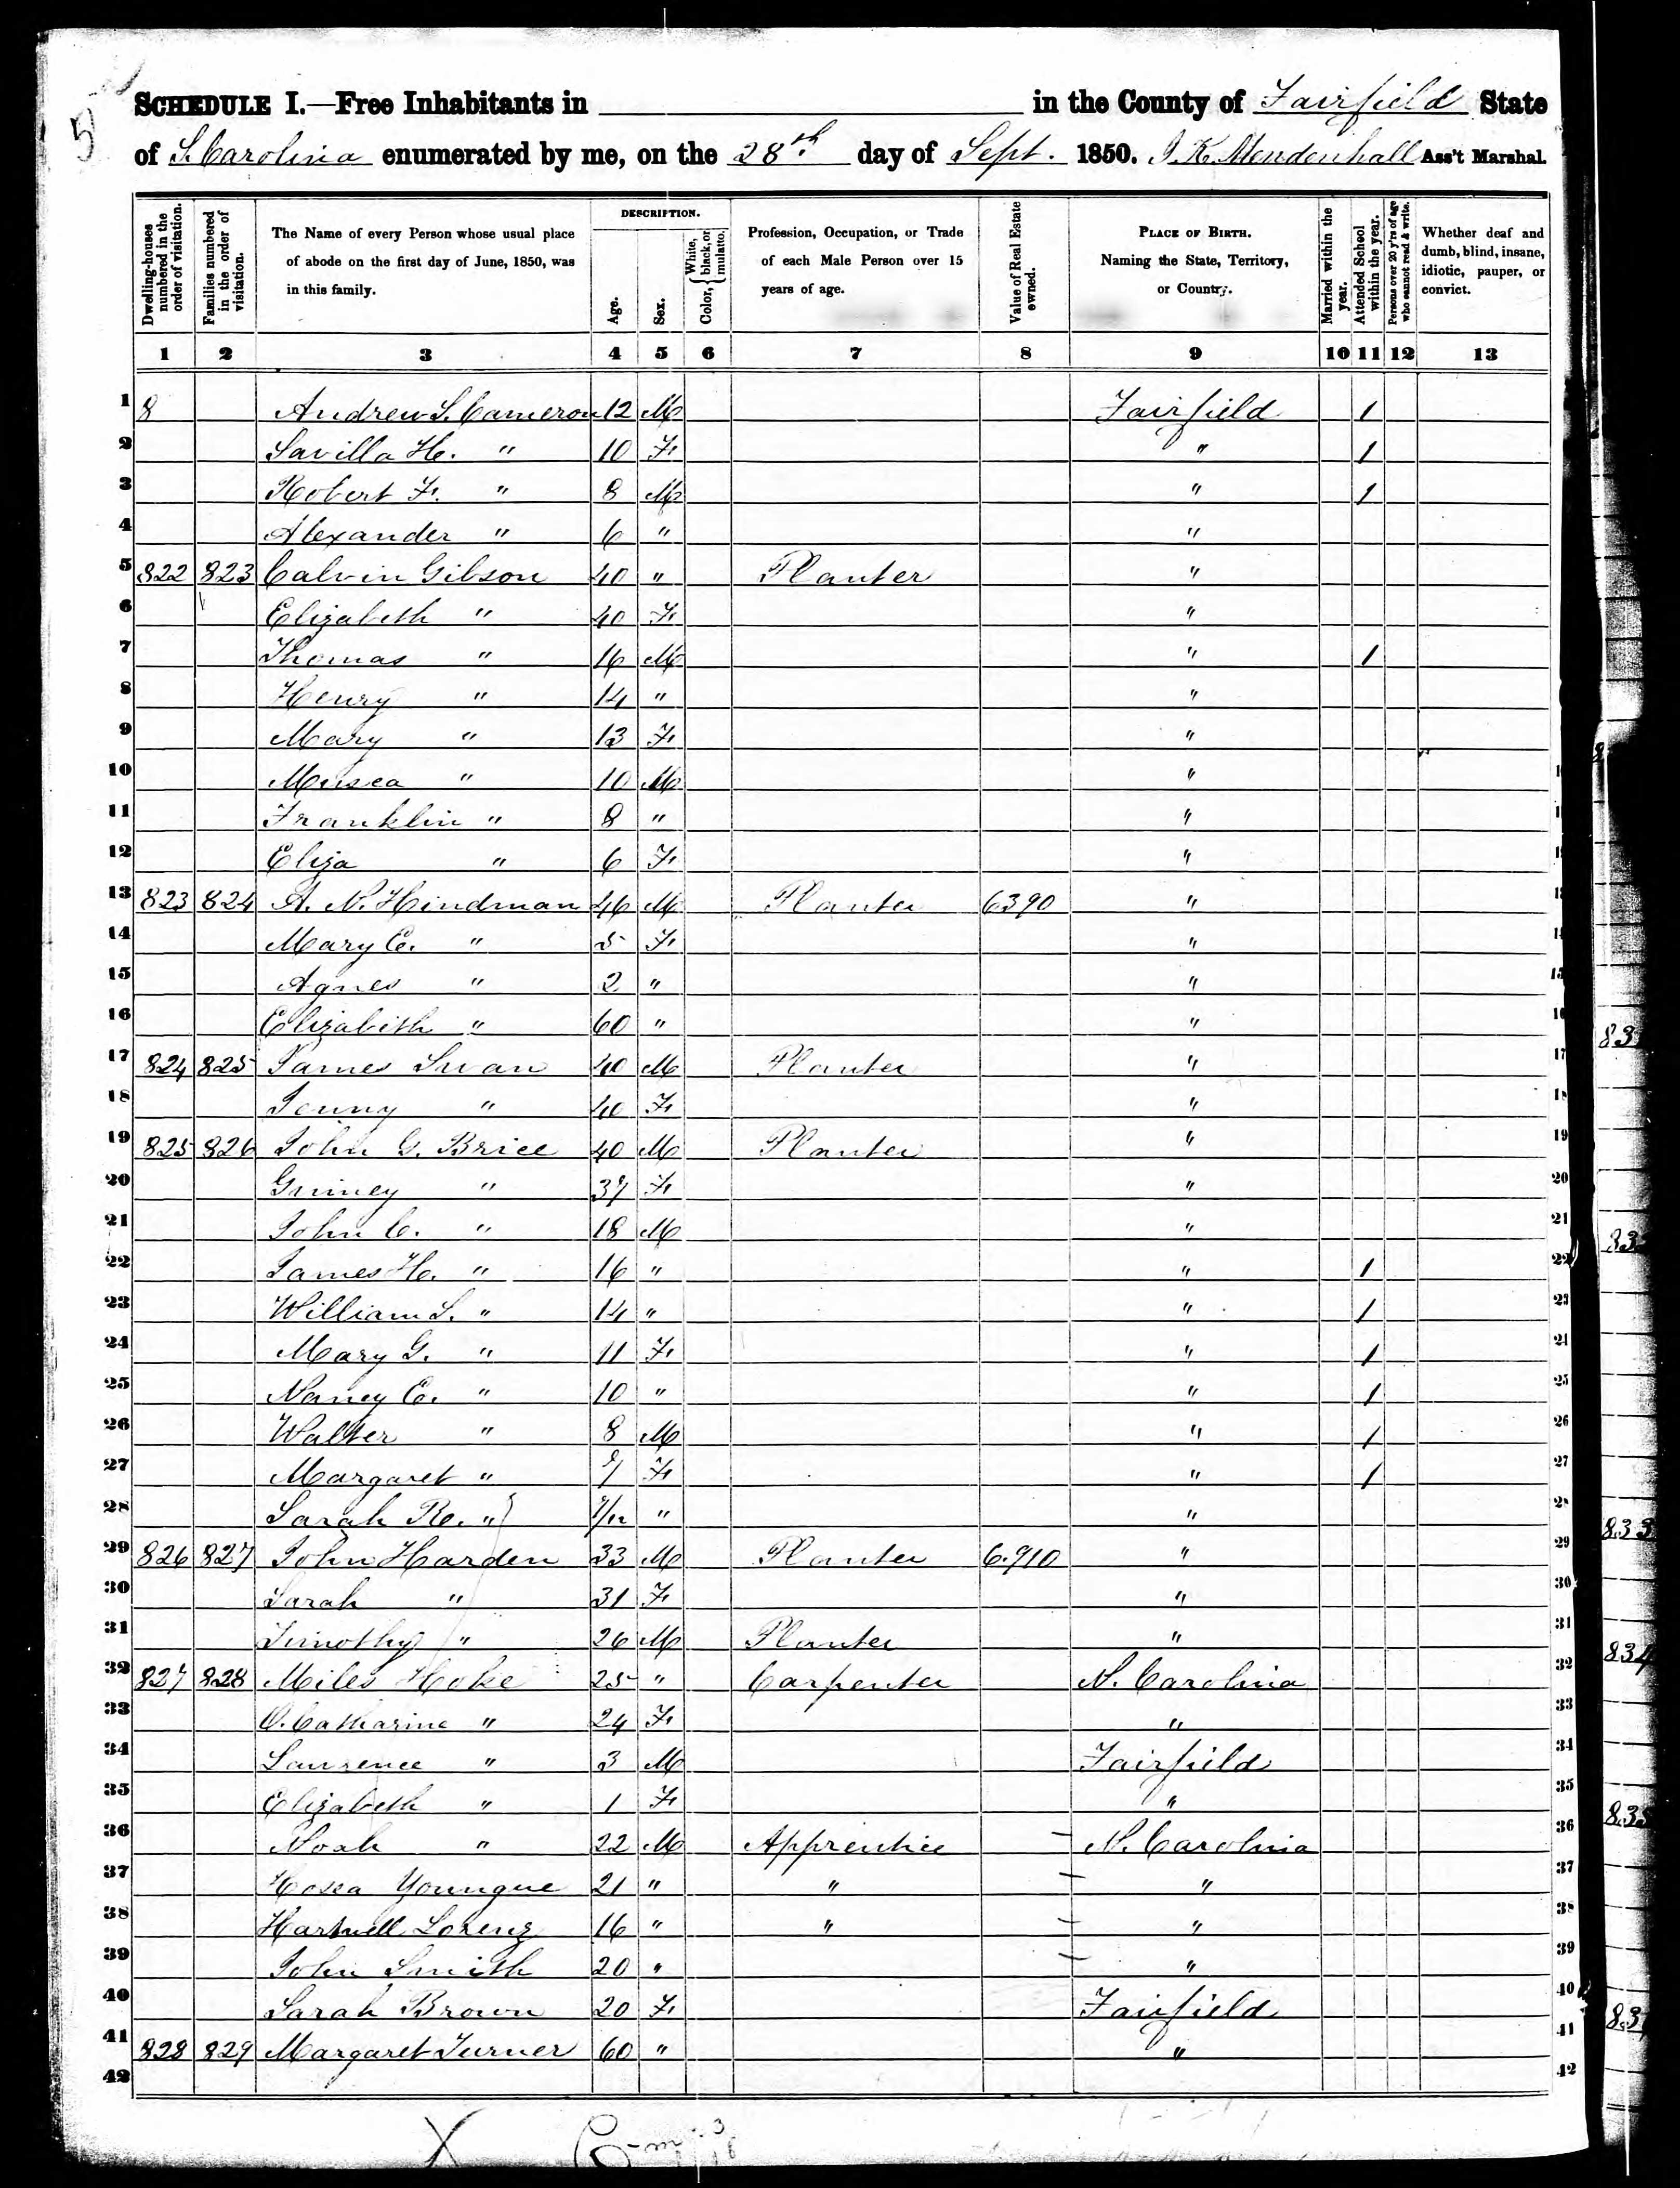 5
SCHEDULE I.—Free Inhabitants in in the County of Fairfield State
of S. Carolina enumerated by me, on the 28th day of Sept. 1850. J. K. Mendenhall Ass't Marshal.
Dwelling-houses numbered in the order of visitation.
Families numbered in the order of visitation.
The Name of every Person whose usual place of abode on the first day of June, 1850, was in this family.
DESCRIPTION.
Age.
Sex.
Color, { White, black, or mulatto.
Profession, Occupation, or Trade of each Male Person over 15 years of age.
Value of Real Estate owned.
PLACE OF BIRTH. Naming the State, Territory, or Country.
Married within the year.
Attended School within the year.
Persons over 20 y'rs of age who cannot read & write.
Whether deaf and dumb, blind, insane, idiotic, pauper, or convict.
1 2 3 4 5 6 7 8 9 10 11 12 13
1 8 Andrew S. Cameron 12 M Fairfield 1
2 Savilla H. " 10 F. " 1
3 Robert F. " 8 M " 1
4 Alexander " 6 " "
5 822 823 Calvin Gibson 40 " Planter "
6 Elizabeth " 40 F. "
7 Thomas " 16 M " 1
8 Henry " 14 " "
9 Mary " 13 F. "
10 " 10 M "
11 Franklin " 8 " "
12 Eliza " 6 F. "
13 823 824 A. N. Hindman 46 M Planter 6390 "
14 Mary E. " 5 F. "
15 Agnes " 2 " "
16 Elizabeth " 60 " "
17 824 825 James Swan 40 M Planter "
18 Jenny " 40 F. "
19 825 826 John G. Brice 40 M Planter " 19
20 " 37 F. " 20
21 John C. " 18 M " 21
22 James H. " 16 " " 1 22
23 William S. " 14 " " 1 23
24 Mary G. " 11 F. " 1
25 Nancy E. " 10 " " 1 25
26 Walter " 8 M " 1 26
27 Margaret " 7 F. " 1 27
28 Sarah R. " 7/12 " "
29 826 827 John Harden 33 M Planter 6.910 " 29
30 Sarah " 31 F. " 30
31 Timothy " 26 M Planter " 31
32 827 828 Miles Hoke 25 " Carpenter N. Carolina 32
33 C. Catharine " 24 F. " 33
34 Lawrence " 3 M Fairfield 34
35 Elizabeth " 1 F. " 35
36 Noah " 22 M Apprentice N. Carolina 36
37 Hosea Youngue 21 " " " 37
38 Hartwell Lorenz 16 " " " 38
39 John Smith 20 " " 39
40 Sarah Brown 20 F. Fairfield 40
41 828 829 Margaret Turner 60 " " 41
42 42